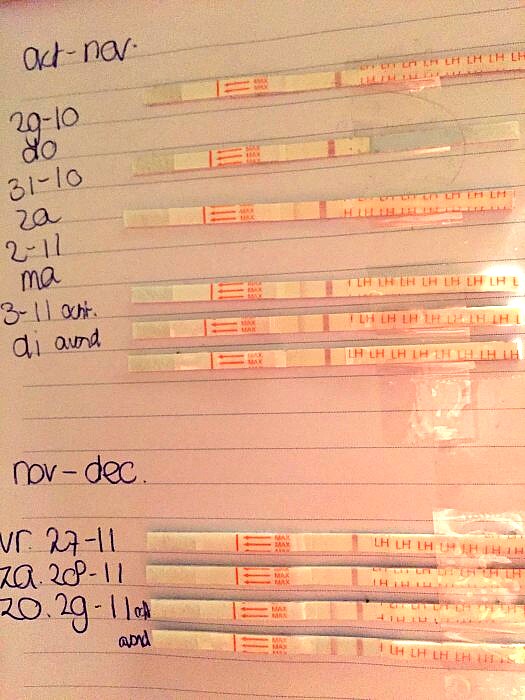 oct-nov.
LH LH LH LH LH LH L
MAX
MAX
29-10
do
MAX
MAX
MAX
31-10
za
MAX
MAX
MAX
H LH LH LH LH LH LH L
2-11
ma
MAX
MAX
MAX
LH LH LH LH LH LH LH L
3-11 ocht.
MAX
MAX
LH LH LH LH LH LH LH
di avond
MAX
MAX
LH LH LH LH LH LH LH
nov-dec.
vr. 27-11
MAX
MAX
MAX
LH LH LH LH LH LH
za. 28-11
MAX
MAX
MAX
LH LH LH LH LH LH
zo. 29-11 och
MAX
MAX
LH LH LH LH LH LH
avond
MAX
MAX
MAX
LH LH LH LH LH LH